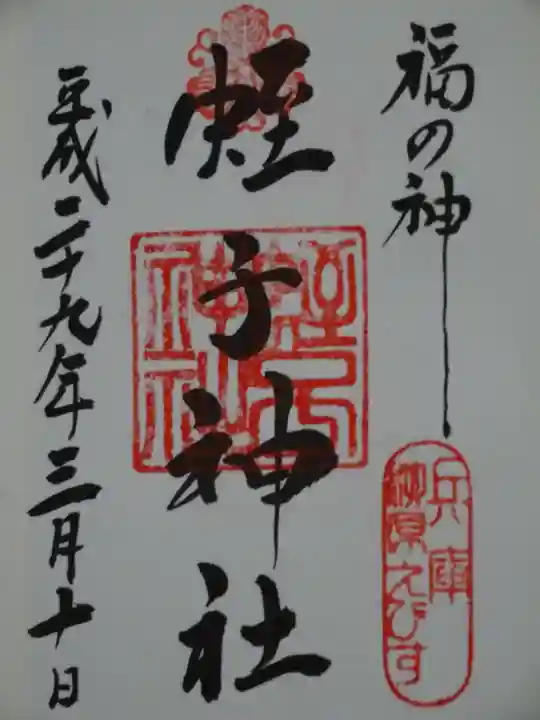 福の神
兵庫
柳原えびす
蛭子神社
蛭子神社
平成二十九年三月十日